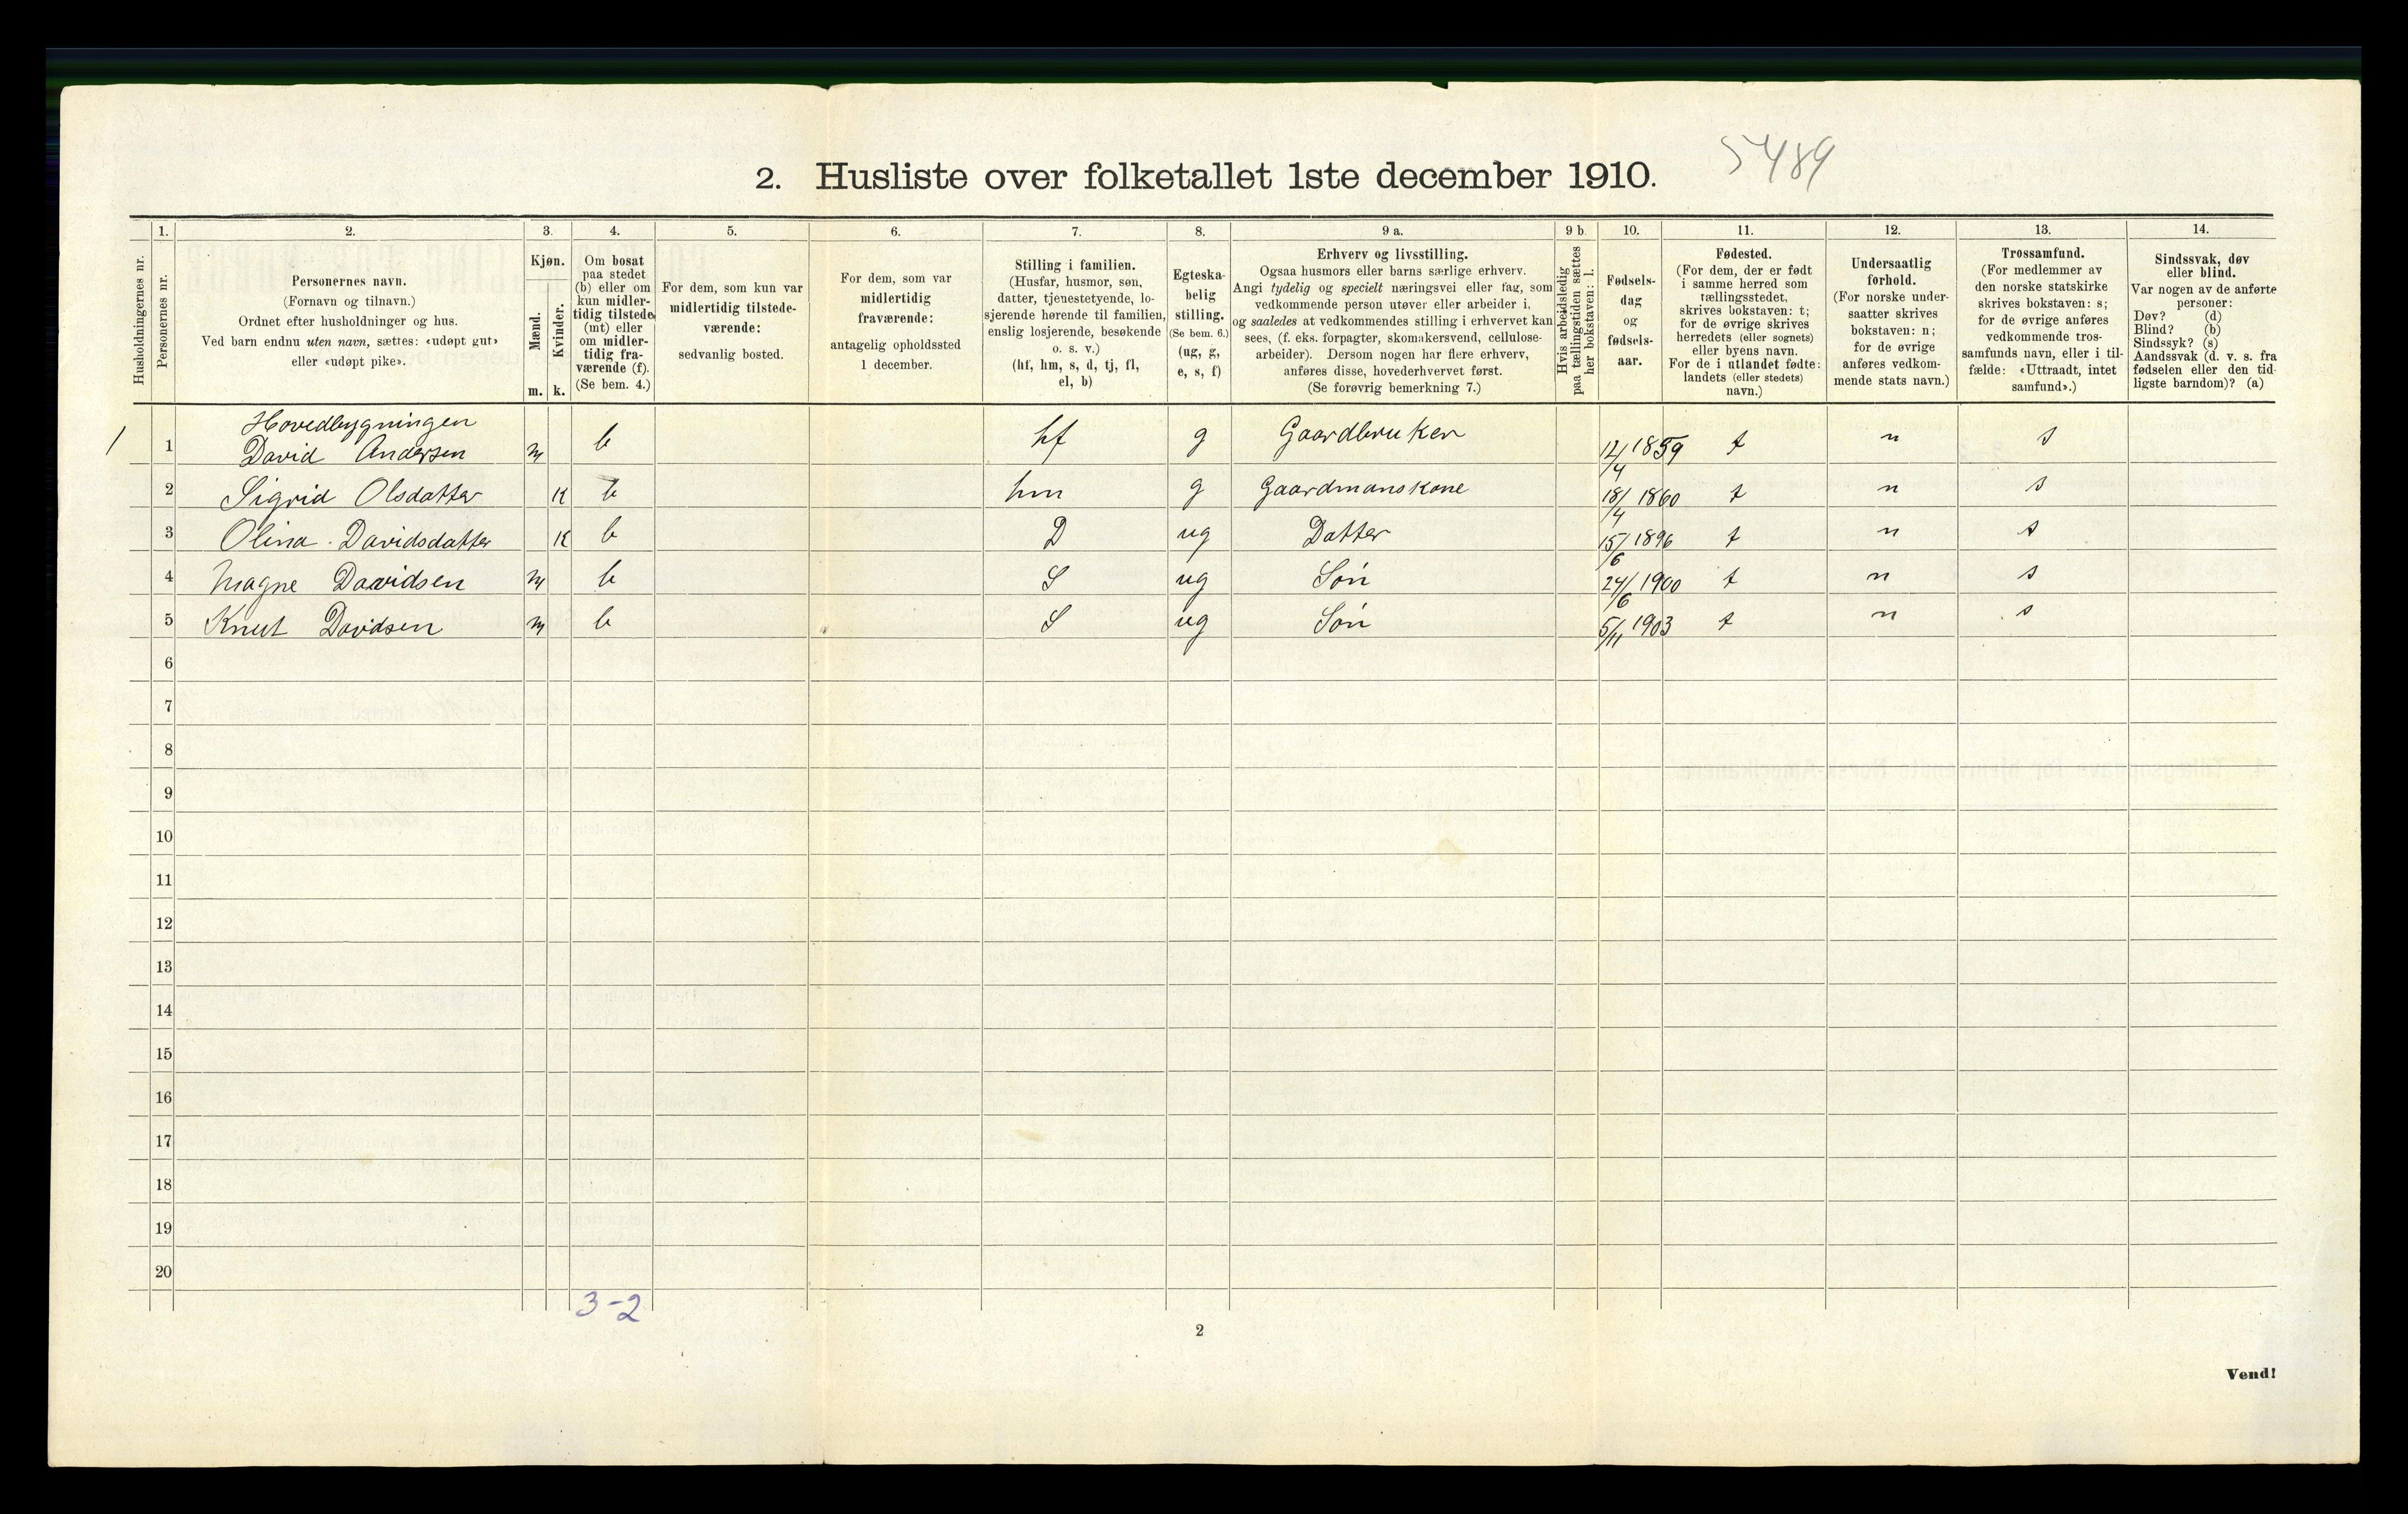 5489
2. Husliste over folketallet 1ste december 1910.
1. 2. 3. 4. 5. 6. 7. 8. 9 a. 9 b. 10. 11. 12. 13. 14.
Husholdningernes nr.
Personernes nr.
Personernes navn.
(Fornavn og tilnavn.)
Ordnet efter husholdninger og hus.
Ved barn endnu uten navn, sættes: «udøpt gut»
eller «udøpt pike».
Kjøn.
Mænd.
m.
Kvinder.
k.
Om bosat
paa stedet
(b) eller om
kun midler-
tidig tilstede
(mt) eller
om midler-
tidig fra-
værende (f).
(Se bem. 4.)
For dem, som kun var
midlertidig tilstede-
værende:
sedvanlig bosted.
For dem, som var
midlertidig
fraværende:
antagelig opholdssted
1 december.
Stilling i familien.
(Husfar, husmor, søn,
datter, tjenestetyende, lo-
sjerende hørende til familien,
enslig losjerende, besøkende
o. s. v.)
(hf, hm, s, d, tj, fl,
el, b)
Egteska-
belig
stilling.
(Se bem. 6.)
(ug, g,
e, s, f)
Erhverv og livsstilling.
Ogsaa husmors eller barns særlige erhverv.
Angi tydelig og specielt næringsvei eller fag, som
vedkommende person utøver eller arbeider i,
og saaledes at vedkommendes stilling i erhvervet kan
sees, (f. eks. forpagter, skomakersvend, cellulose-
arbeider). Dersom nogen har flere erhverv,
anføres disse, hovederhvervet først.
(Se forøvrig bemerkning 7.)
Hvis arbeidsledig
paa tællingstiden sættes
her bokstaven: l.
Fødsels-
dag
og
fødsels-
aar.
Fødested.
(For dem, der er født
i samme herred som
tællingsstedet,
skrives bokstaven: t;
for de øvrige skrives
herredets (eller sognets)
eller byens navn.
For de i utlandet fødte:
landets (eller stedets)
navn.)
Undersaatlig
forhold.
(For norske under-
saatter skrives
bokstaven: n;
for de øvrige
anføres vedkom-
mende stats navn.)
Trossamfund.
(For medlemmer av
den norske statskirke
skrives bokstaven: s;
for de øvrige anføres
vedkommende tros-
samfunds navn, eller i til-
fælde: «Uttraadt, intet
samfund».)
Sindssvak, døv
eller blind.
Var nogen av de anførte
personer:
Døv? (d)
Blind? (b)
Sindssyk? (s)
Aandssvak (d. v. s. fra
fødselen eller den tid-
ligste barndom)? (a)
Hovedbygningen
1 1 David Andersen m b hf g Gaardbruker 12/4 1859 t n s
2 Sigrid Olsdatter K b hm g Gaardmanskone 18/4 1860 t n s
3 Olina Davidsdatter K b D ug Datter 15/6 1896 t n s
4 Magne Davidsen m b S ug Søn 24/6 1900 t n s
5 Knut Davidsen m b S ug Søn 5/11 1903 t n s
6
7
8
9
10
11
12
13
14
15
16
17
18
19
20
3-2
2
Vend!